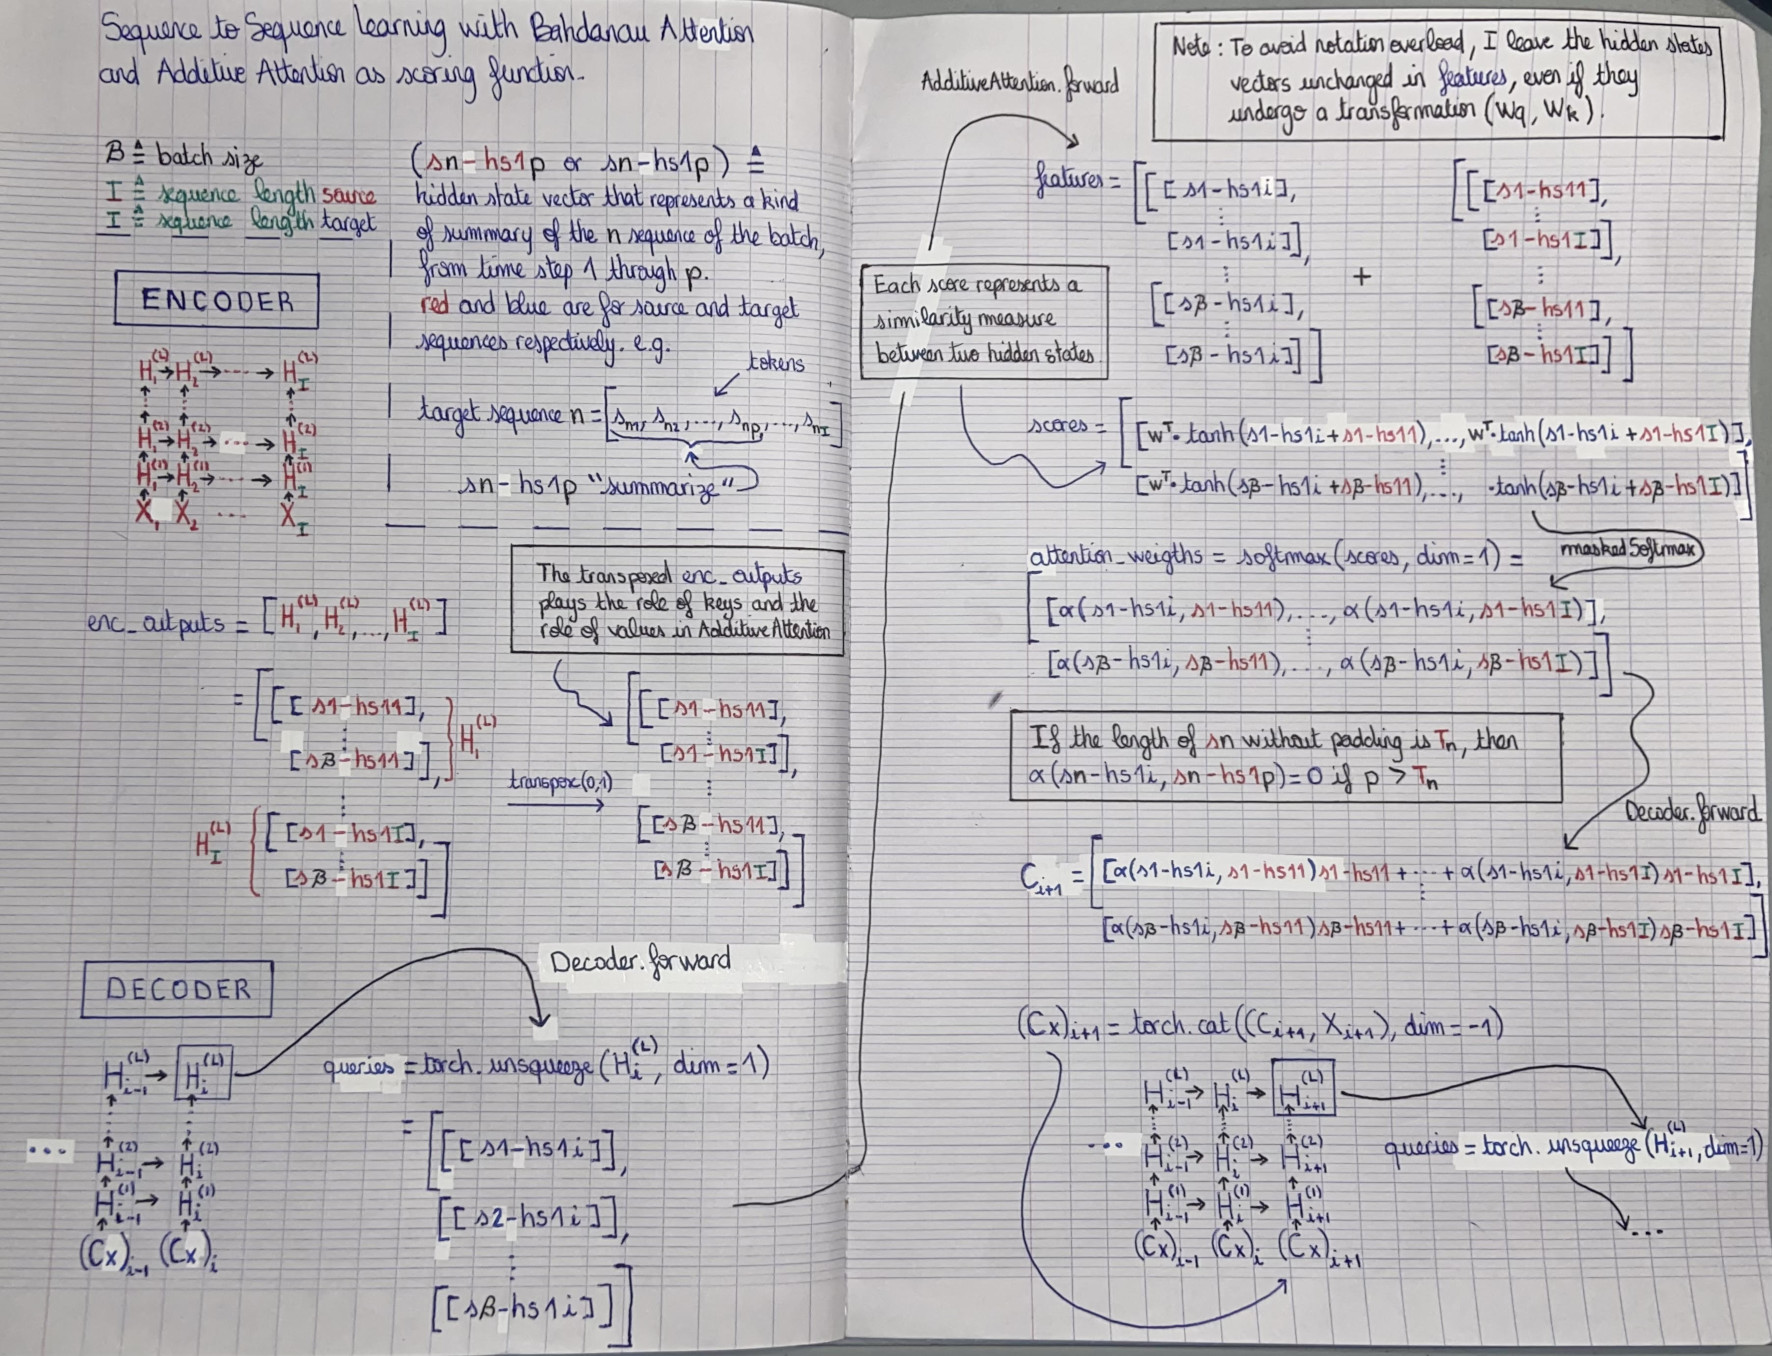 Sequence to Sequence learning with Bahdanau Attention
and Additive Attention as scoring function.
B ≜ batch size
I ≜ sequence length source
I ≜ sequence length target
(sn-hs1p or sn-hs1p) ≜
hidden state vector that represents a kind
of summary of the n sequence of the batch,
from time step 1 through p.
red and blue are for source and target
sequences respectively. e.g.
tokens
target sequence n = [sn1, sn2, ..., snp, ..., snI]
sn-hs1p "summarize"
ENCODER
H1^(L) → H2^(L) → ... → HI^(L)
H1^(2) → H2^(2) → ... → HI^(2)
H1^(1) → H2^(1) → ... → HI^(1)
X1 X2 ... XI
The transposed enc_outputs
plays the role of keys and the
role of values in Additive Attention
enc_outputs = [H1^(L), H2^(L), ..., HI^(L)]
= [[[s1-hs11],
⋮
[sB-hs11]], } H1^(L)
⋮
HI^(L) { [[s1-hs1I],
⋮
[sB-hs1I]]]
transpose(0,1)
[[[s1-hs11],
⋮
[s1-hs1I]],
⋮
[[sB-hs11],
⋮
[sB-hs1I]]]
DECODER
Decoder.forward
Hi-1^(L) → Hi^(L)
... Hi-1^(2) → Hi^(2)
Hi-1^(1) → Hi^(1)
(Cx)i-1 (Cx)i
queries = torch.unsqueeze(Hi^(L), dim=1)
= [[[s1-hs1i]],
[[s2-hs1i]],
⋮
[[sB-hs1i]]]
AdditiveAttention.forward
Note: To avoid notation overload, I leave the hidden states
vectors unchanged in features, even if they
undergo a transformation (Wq, Wk).
features = [[[s1-hs1i], [[[s1-hs11],
⋮ ⋮
[s1-hs1i]], [s1-hs1I]],
⋮ + ⋮
[[sB-hs1i], [[sB-hs11],
⋮ ⋮
[sB-hs1i]]] [sB-hs1I]]]
Each score represents a
similarity measure
between two hidden states
scores = [[w^T·tanh(s1-hs1i+s1-hs11), ..., w^T·tanh(s1-hs1i+s1-hs1I)],
⋮
[w^T·tanh(sB-hs1i+sB-hs11), ..., ·tanh(sB-hs1i+sB-hs1I)]]
attention_weigths = softmax(scores, dim=1) =
maskedSoftmax
[[α(s1-hs1i, s1-hs11), ..., α(s1-hs1i, s1-hs1I)],
⋮
[α(sB-hs1i, sB-hs11), ..., α(sB-hs1i, sB-hs1I)]]
If the length of sn without padding is Tn, then
α(sn-hs1i, sn-hs1p)=0 if p > Tn
Decoder.forward
Ci+1 = [[α(s1-hs1i, s1-hs11)s1-hs11+...+α(s1-hs1i, s1-hs1I)s1-hs1I],
⋮
[α(sB-hs1i, sB-hs11)sB-hs11+...+α(sB-hs1i, sB-hs1I)sB-hs1I]]
(Cx)i+1 = torch.cat((Ci+1, Xi+1), dim=-1)
Hi-1^(L) → Hi^(L) → Hi+1^(L)
... Hi-1^(2) → Hi^(2) → Hi+1^(2)
Hi-1^(1) → Hi^(1) → Hi+1^(1)
(Cx)i-1 (Cx)i (Cx)i+1
queries = torch.unsqueeze(Hi+1^(L), dim=1)
...